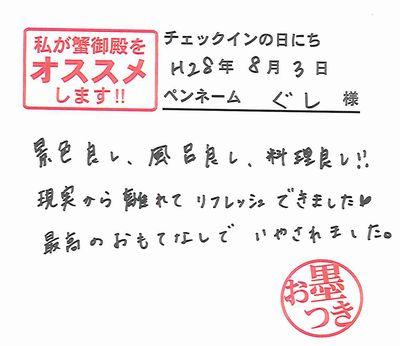 私が蟹御殿を
オススメ
します!!
チェックインの日にち
H28年8月3日
ペンネーム ぐし 様
景色良し、風呂良し、料理良し!!
現実から離れてリフレッシュできました♥
最高のおもてなしでいやされました。
お墨つき